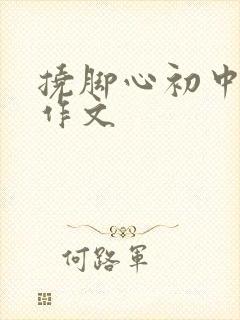 挠脚心初中
作文
何路军